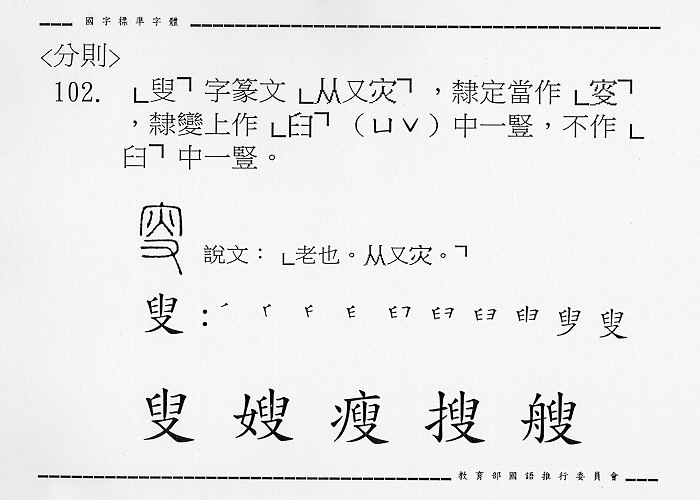 國字標準字體
<分則>
102. ㄴ叟ㄱ字篆文ㄴ从又灾ㄱ，隸定當作ㄴ叜ㄱ
，隸變上作ㄴ𦥑ㄱ（ㄩㄣ）中一豎，不作ㄴ
臼ㄱ中一豎。
說文：ㄴ老也。从又灾。ㄱ
叟：
叟 嫂 瘦 搜 艘
教育部國語推行委員會